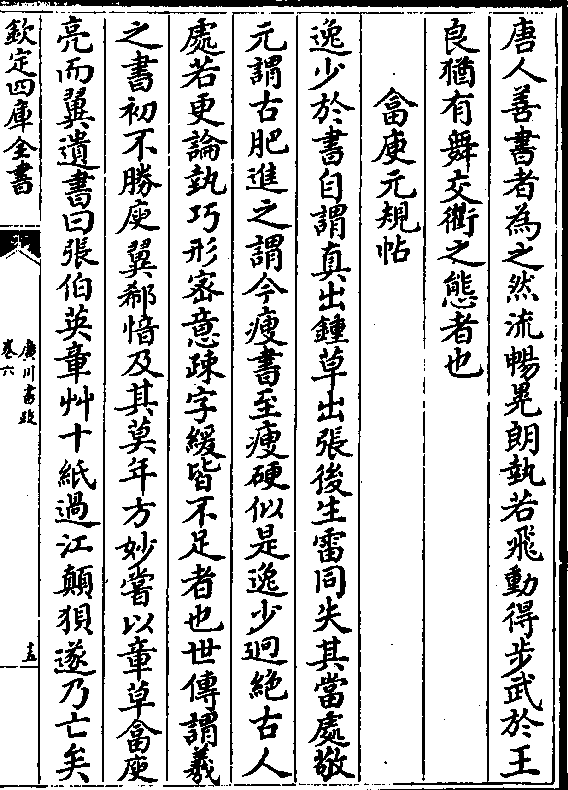 唐人善書者為之然流暢晃朗埶若飛動得步武於王
良猶有舞交衢之態者也
畣庾元規帖
逸少於書自謂真出鍾草出張後生雷同失其當處敬
元謂古肥進之謂今瘦書至瘦硬似是逸少迥絶古人
處若更論埶巧形宻意疎字緩皆不足者也世傳謂羲
之書初不勝庾翼郗愔及其莫年方妙嘗以章草畣庾
亮而翼遺書曰張伯英章艸十紙過江顛狽遂乃亡矣
欽定四庫全書
廣川書跋
卷六
十五